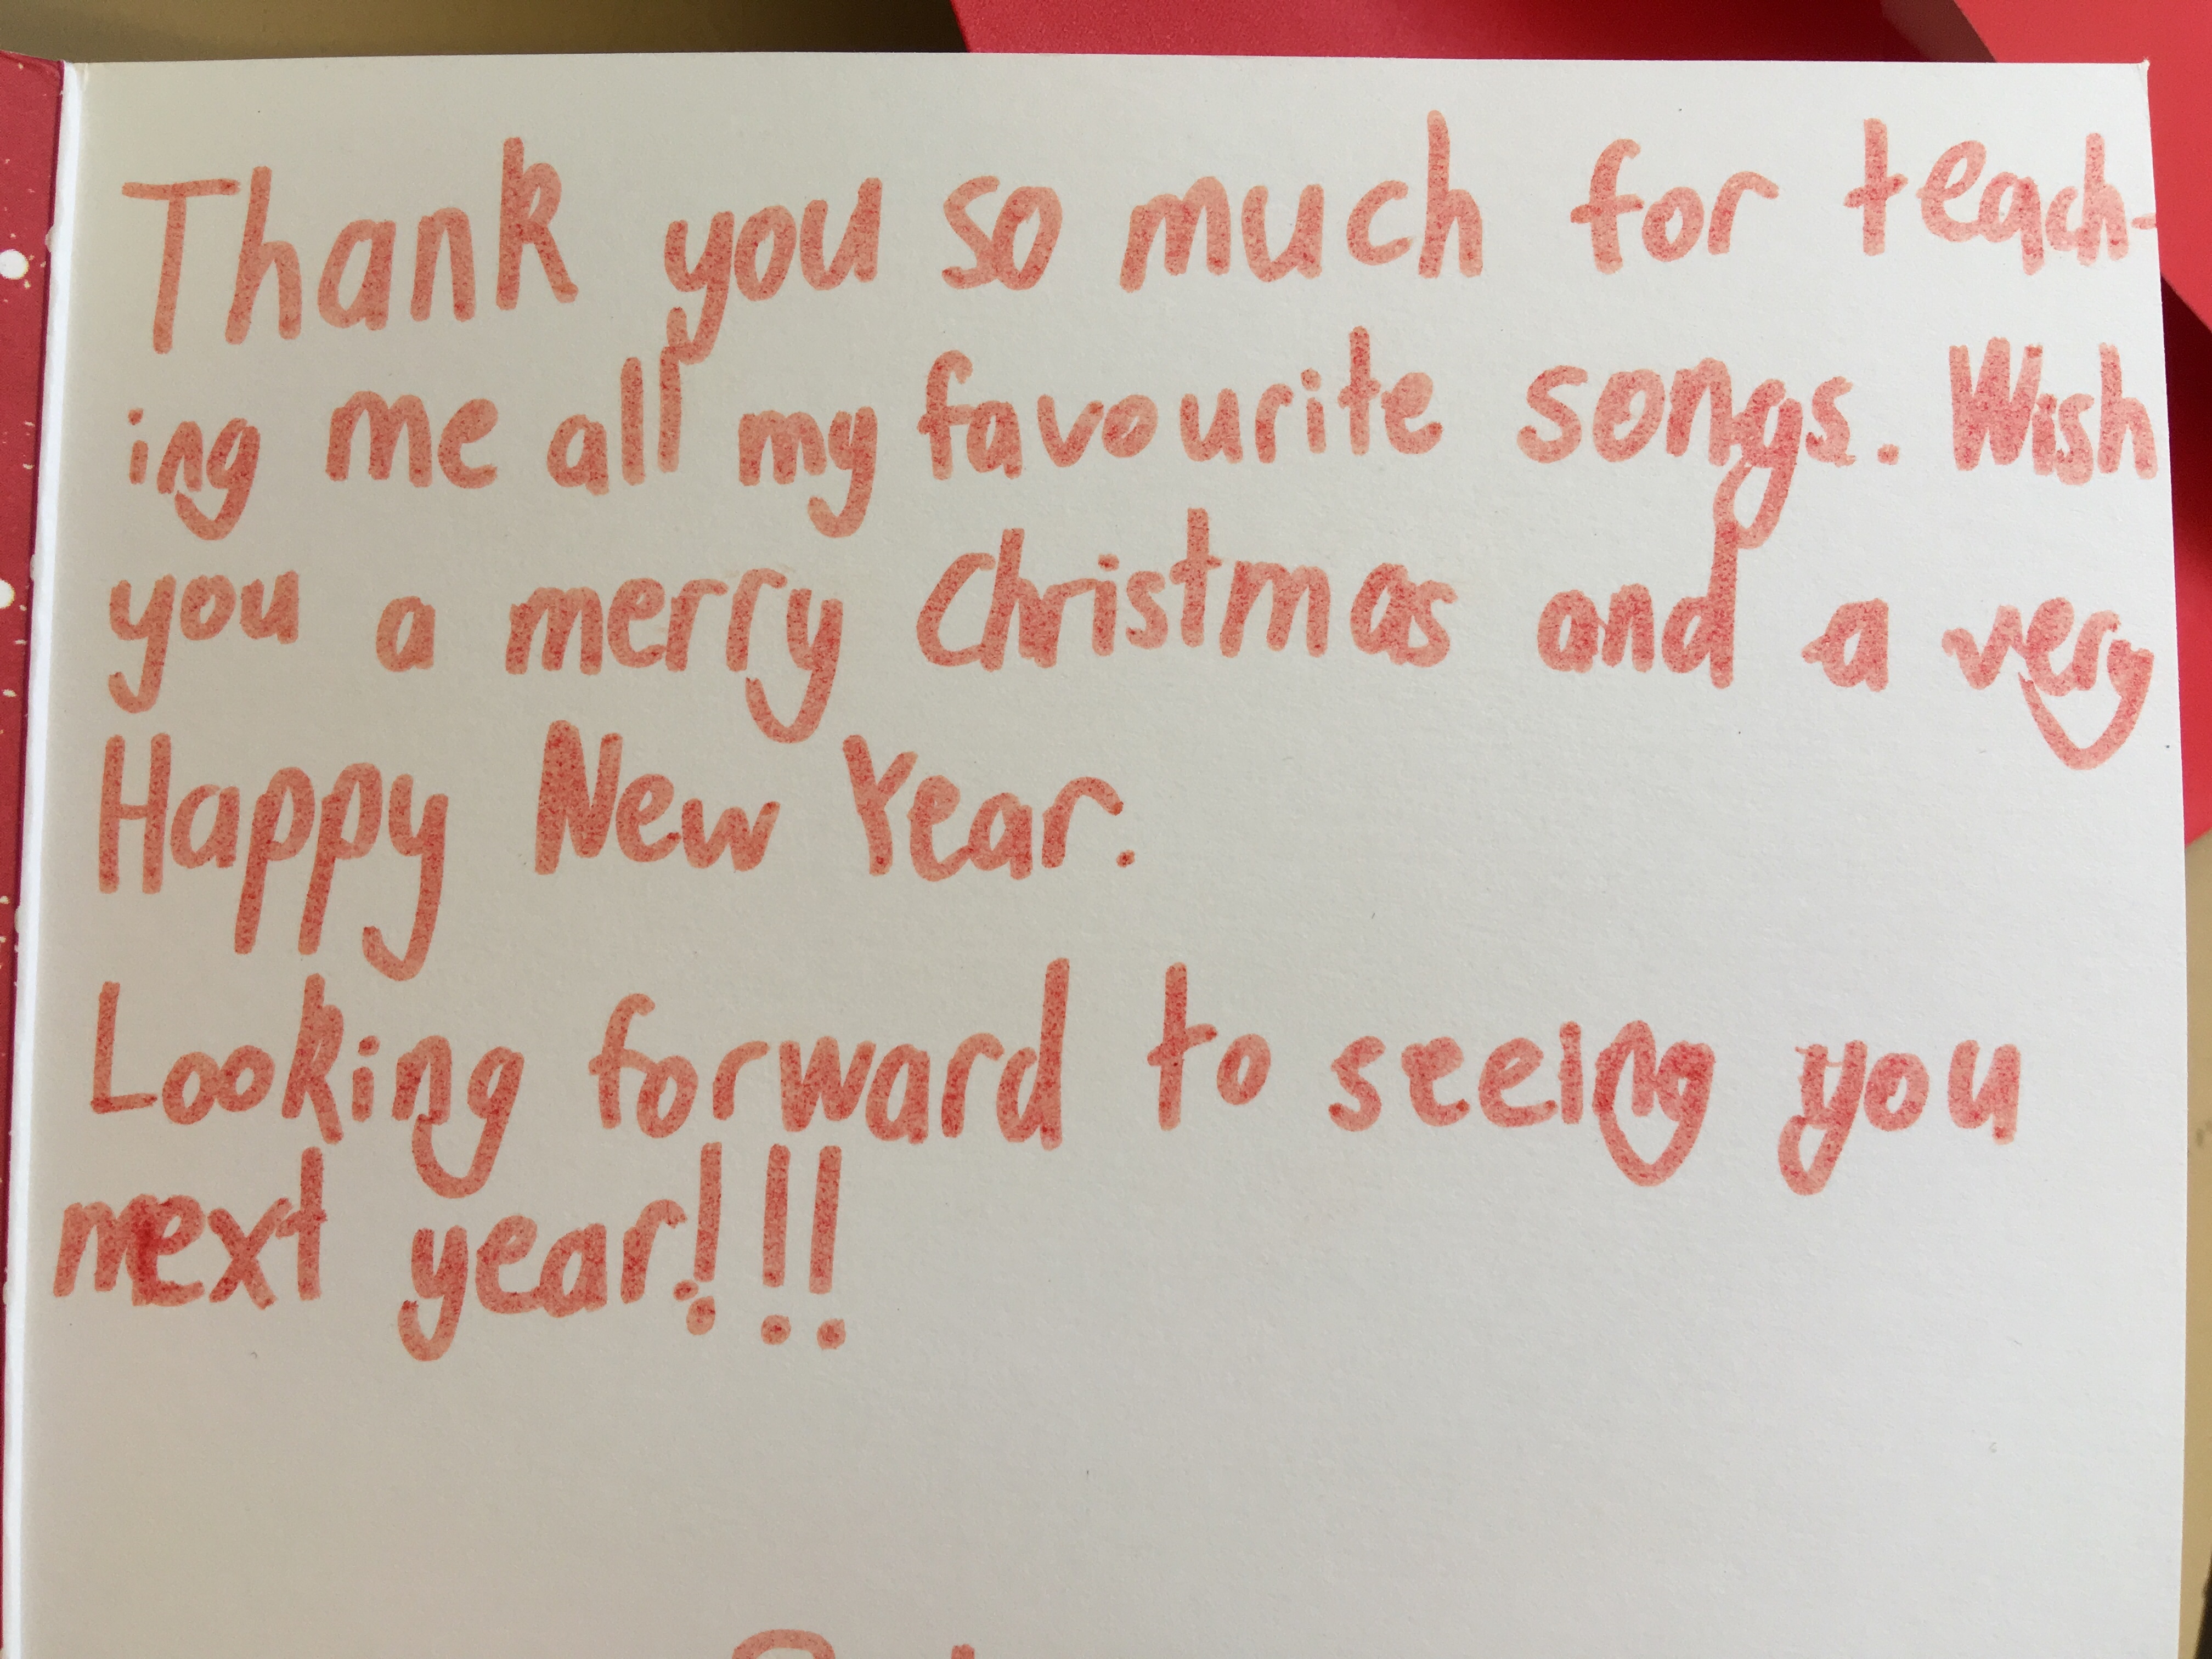 Thank you so much for teach-
ing me all my favourite songs. Wish
you a merry Christmas and a very
Happy New Year.
Looking forward to seeing you
next year!!!